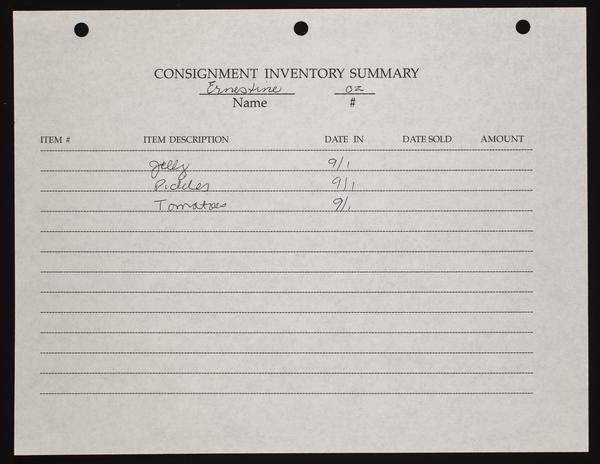 CONSIGNMENT INVENTORY SUMMARY
Ernestine 02
Name #
ITEM # ITEM DESCRIPTION DATE IN DATE SOLD AMOUNT
Jelly 9/1
Pickles 9/1
Tomatoes 9/1